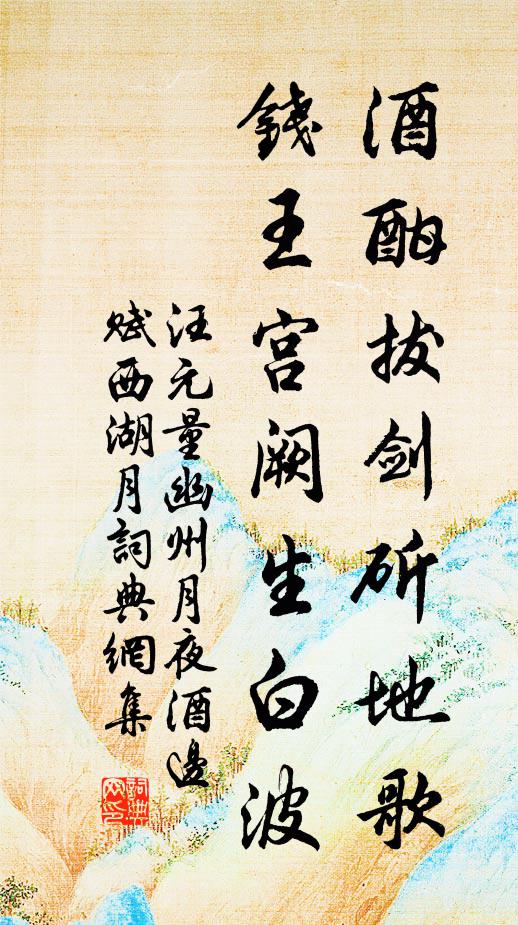 酒酣拔剑斫地歌
錢王宫阙生白波
汪元量幽州月夜酒邊
赋西湖月詞典網集
詞典